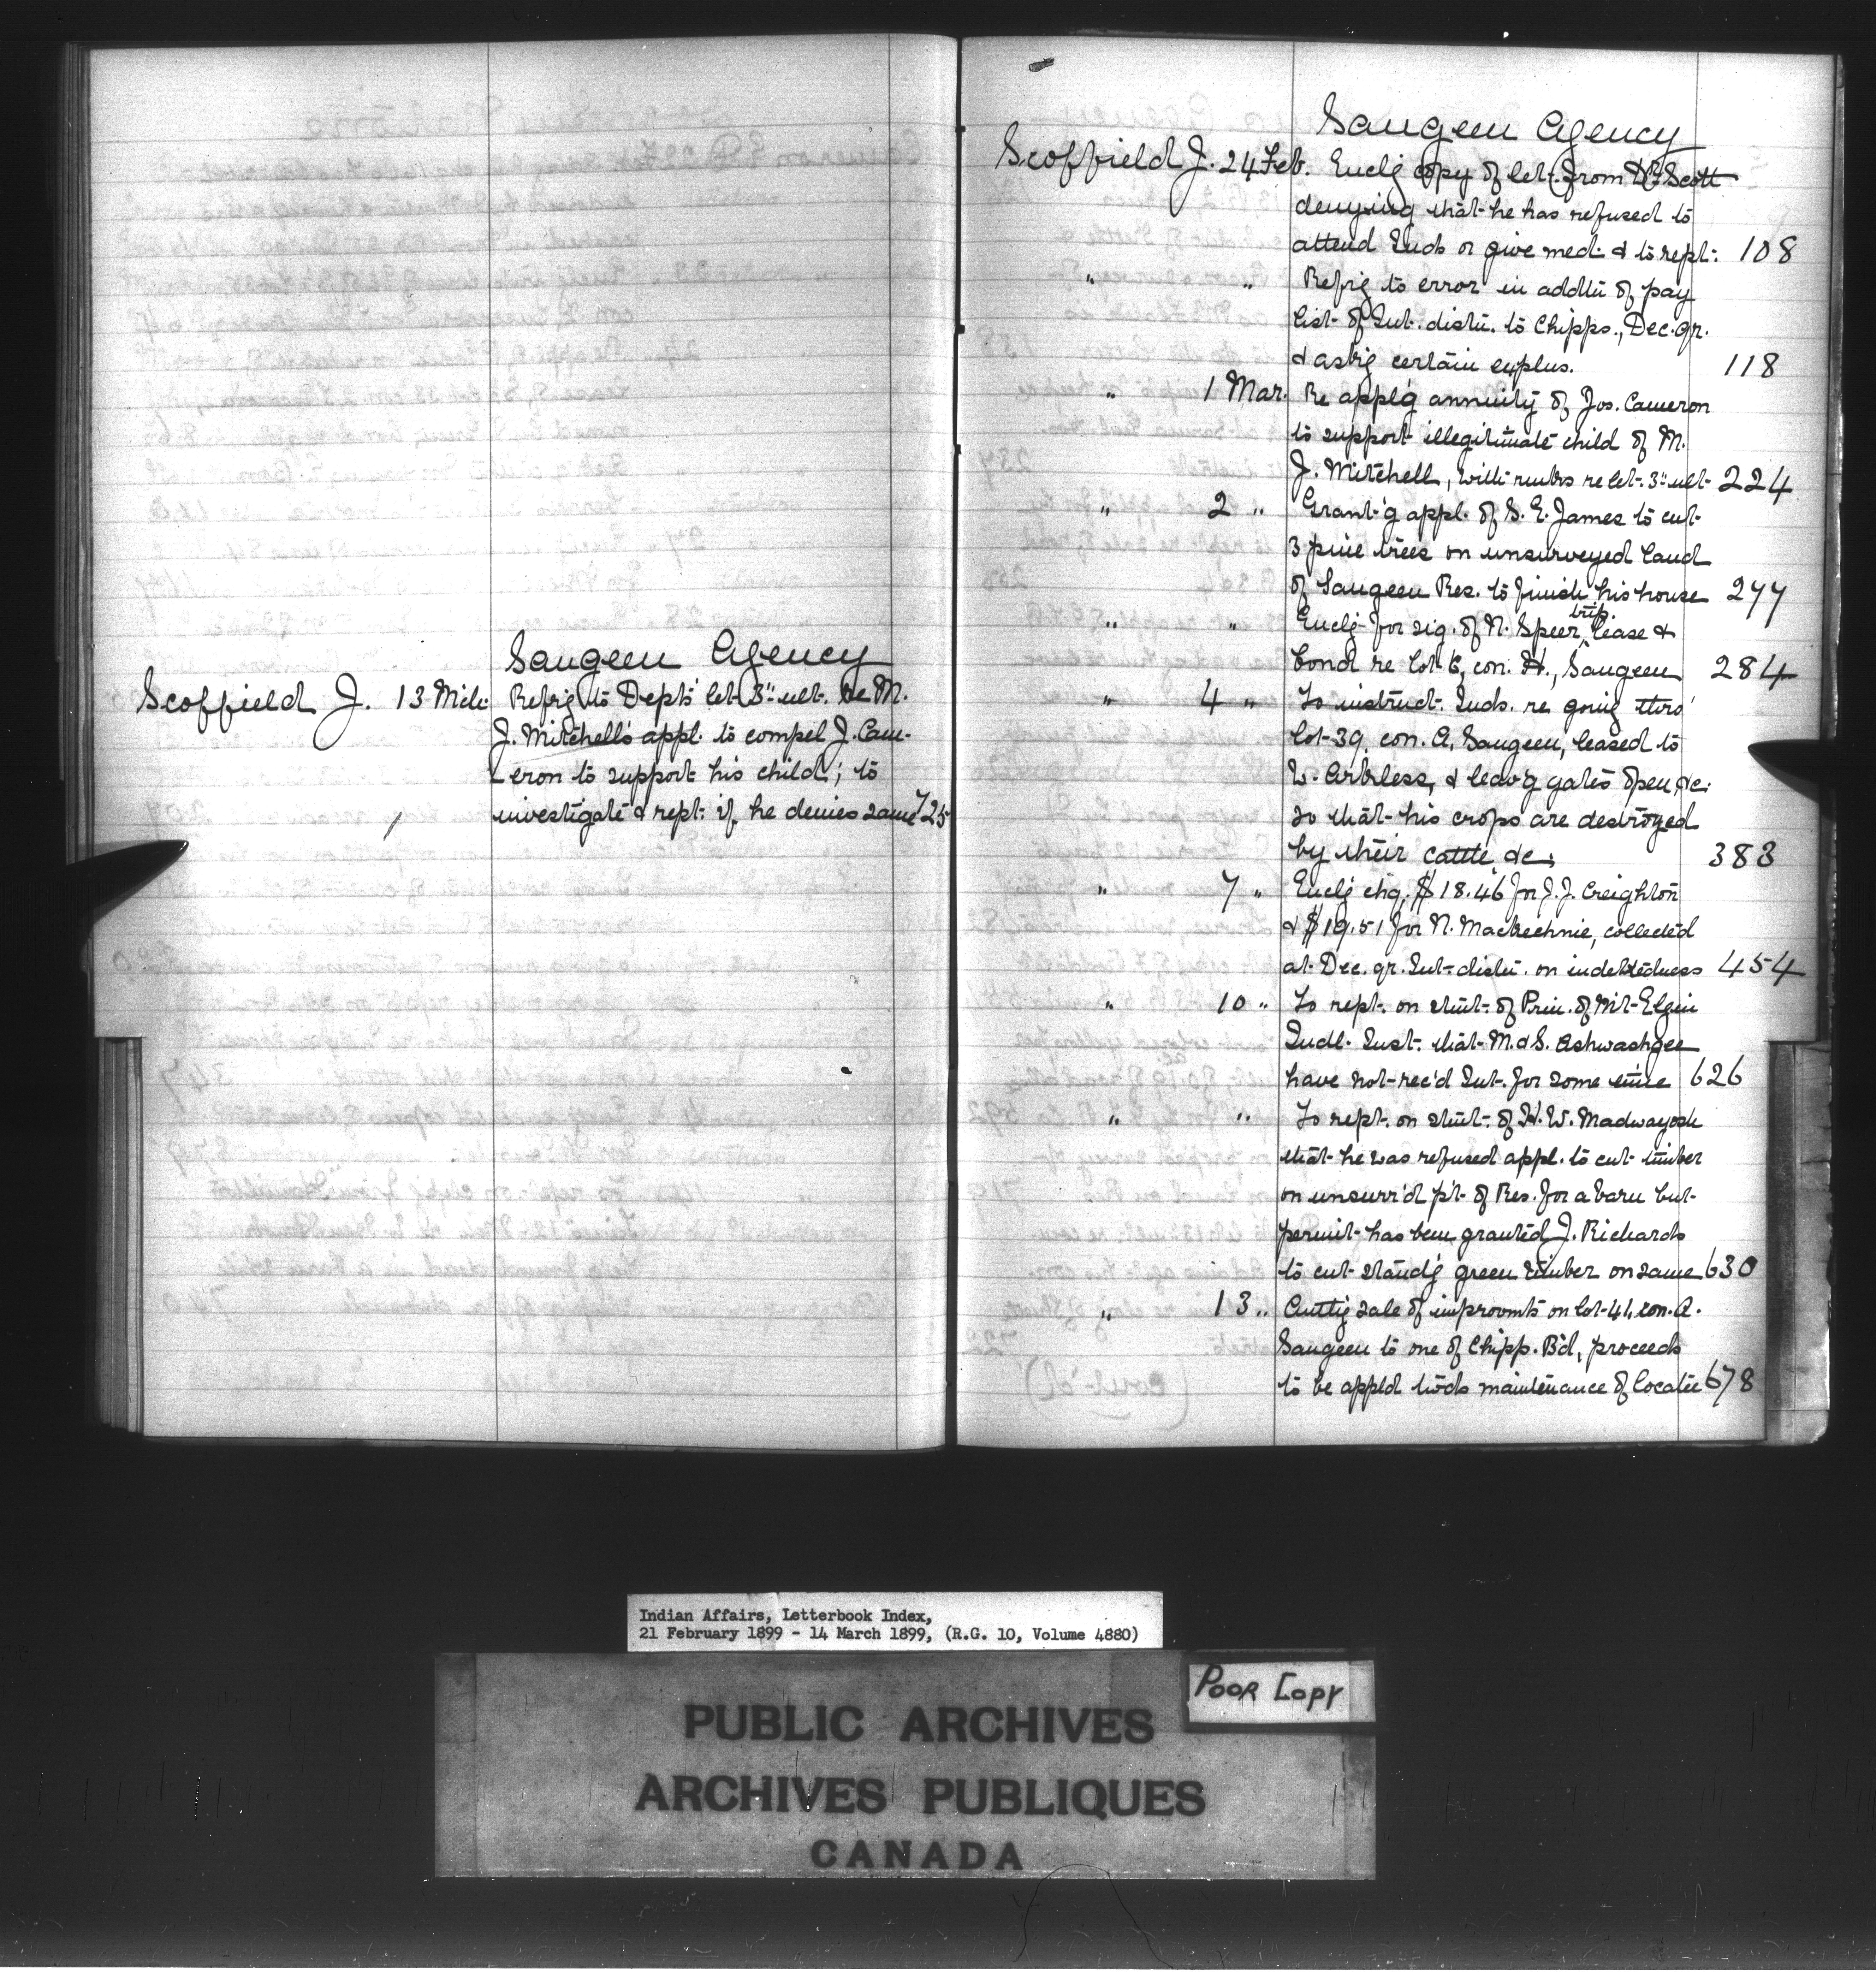 Saugeen Agency
Scoffield J. 13 Mch: Refrig to Depts' let. 3" ult. re M.
J. Mitchell's appl. to compel J. Cam-
-eron to support his child; to
investigate & rept. if he denies same 725
Saugeen Agency
Scoffield J. 24 Feb. Enclg copy of let. from Dr Scott
denying that he has refused to
attend Inds or give med. & to rept: 108
" " Refrig to error in addtn of pay
list of Int. distn. to Chipps., Dec. qr.
& askg certain explns. 118
" 1 Mar. Re applg annuity of Jos. Cameron
to support illegitimate child of M.
J. Mitchell, with rmks re let. 3" ult 224
" 2 " Grant-g appl. of S. E. James to cut
3 pine trees on unsurveyed land
of Saugeen Res. to finish his house 277
" " Enclg for sig. of N. Speer, trip. lease &
bond re lot 6, con. H., Saugeen 284
" 4 " To instruct. Inds. re going thro'
lot 39, con. A, Saugeen, leased to
W. & leav'g gates open &c.
so that his crops are destroyed
by their cattle &c. 383
" 7 " Enclg chq. $18.46 for J. J. Creighton
& $19.51 for N. Mackechnie, collected
at Dec. qr. Int. distn. on indebtedness 454
" 10 " To rept. on stmt. of Prin. of Mt. Elgin
Indl. Inst. that M. & S. Ashwashgee
have not rec'd Int. for some time 626
" " To rept. on stmt. of H. W. Madwayosh
that he was refused appl. to cut timber
on unsurv'd p't of Res. for a barn but
permit has been granted J. Richards
to cut stand'g green timber on same 630
" 13 " sale of improvmts on lot 41, con. A.
Saugeen to one of Chipp. Bd, proceeds
to be appld twds maintenance of locatee 678
Indian Affairs, Letterbook Index,
21 February 1899 - 14 March 1899, (R.G. 10, Volume 4880)
Poor Copy
PUBLIC ARCHIVES
ARCHIVES PUBLIQUES
CANADA